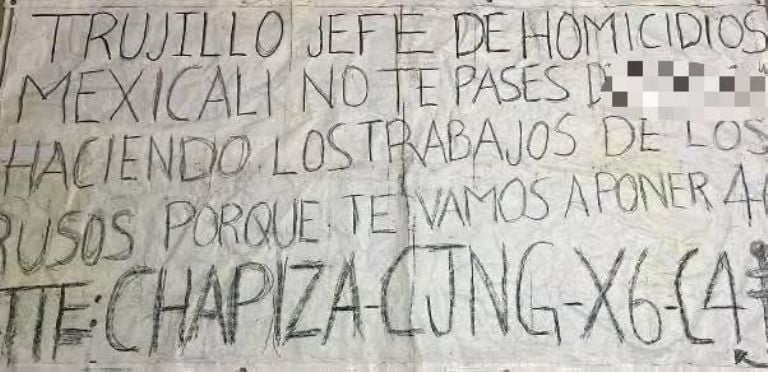 TRUJILLO JEFE DE HOMICIDIOS
MEXICALI NO TE PASES
HACIENDO LOS TRABAJOS DE LOS
RUSOS PORQUE TE VAMOS A PONER
ATTE: CHAPIZA-CJNG-X6-C4